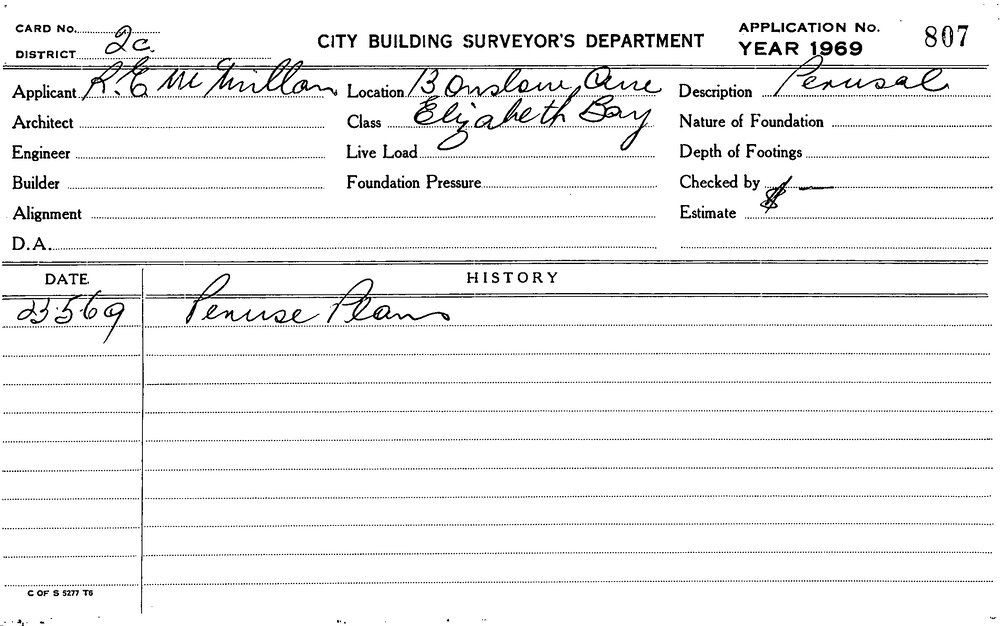 CARD No.
DISTRICT 2c.
CITY BUILDING SURVEYOR'S DEPARTMENT
APPLICATION No. 807
YEAR 1969
Applicant R.E McMillan Location 13 Onslow Ave Description Perusal
Architect Class Elizabeth Bay Nature of Foundation
Engineer Live Load Depth of Footings
Builder Foundation Pressure Checked by
Alignment Estimate $ —
D.A.
DATE HISTORY
23.5.69 Peruse Plans
C OF S 5277 T6